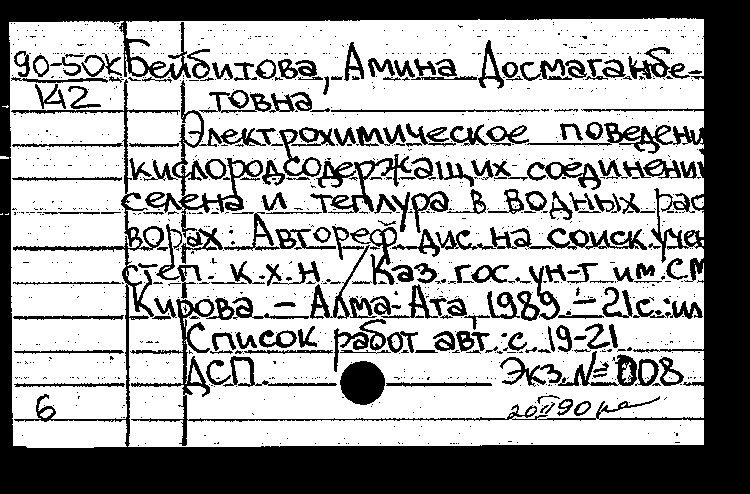 90-50К Бейбитова, Амина Досмаганбе-
142 товна.
Электрохимическое поведени
кислородсодержащих соединени
селена и теллура в водных рас
ворах: Автореф. дис. на соиск. учен
степ. к.х.н. Каз. гос. ун-т им. С.М
Кирова. - Алма-Ата, 1989. - 21 с.: ил
Список работ авт.: с. 19-21
ДСП. Экз. № 008
6 20 II 90